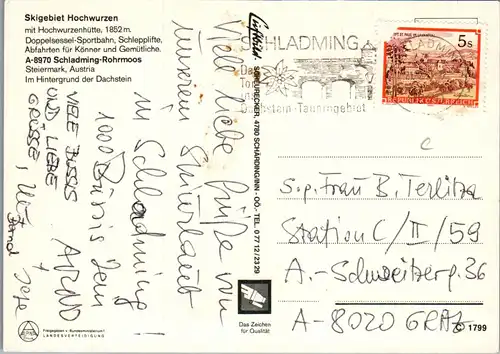 Skigebiet Hochwurzen
mit Hochwurzenhütte, 1852 m.
Doppelsessel-Sportbahn, Schlepplifte,
Abfahrten für Könner und Gemütliche.
A-8970 Schladming-Rohrmoos
Steiermark, Austria
Im Hintergrund der Dachstein
Viele liebe Grüße von
unserem Skiurlaub
in Schladming!
1000 Bussis Dein
ARND
VIELE BUSSIS
UND LIEBE
GRÜSSE,
Freigegeben v. Bundesministerium f.
LANDESVERTEIDIGUNG
Luftbild SCHEURECHER, 4780 SCHÄRDING/INN - OÖ. - TEL. 0 77 12 / 23 29
Das Zeichen
für Qualität
SCHLADMING
Dachstein-Tauerngebiet
5s
REPUBLIK ÖSTERREICH
S.g. Frau B. Terlitza
Station C/II/59
A.-Schweitzerg. 36
A-8020 GRAZ
© 1799